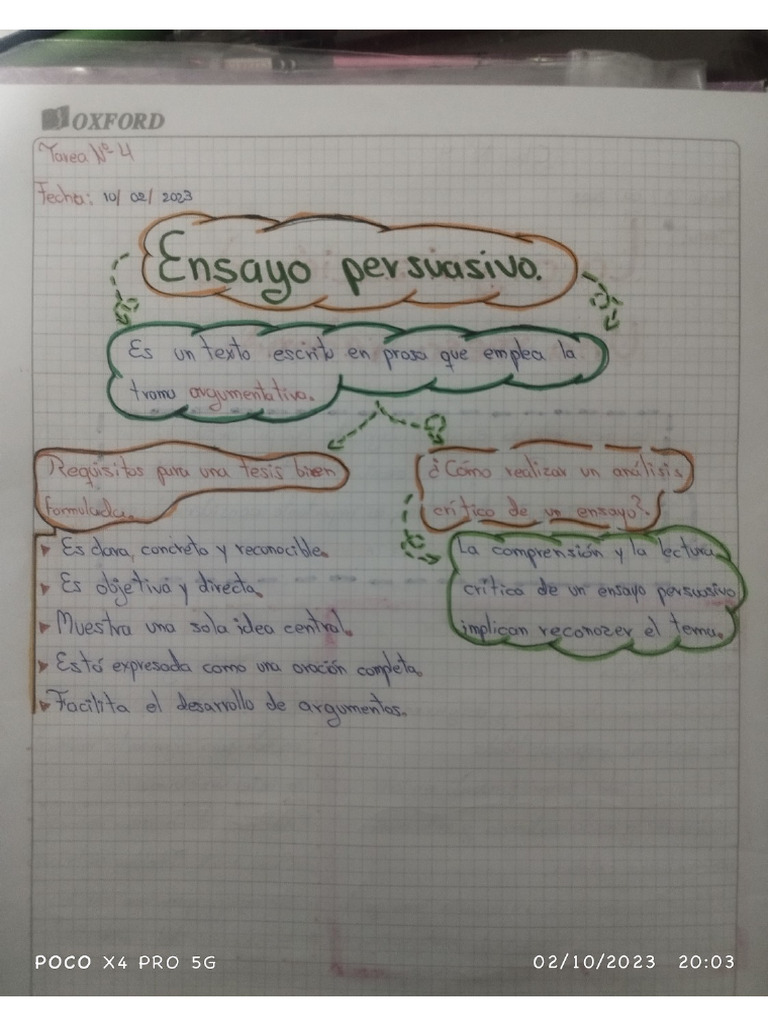 OXFORD
Tarea Nº 4
Fecha: 10/ 02/ 2023
Ensayo persuasivo.
Es un texto escrito en prosa que emplea la
trama argumentativa.
Requisitos para una tesis bien
formulada.
Es clara, concreta y reconocible.
Es objetiva y directa.
Muestra una sola idea central.
Está expresada como una oración completa.
Facilita el desarrollo de argumentos.
¿Cómo realizar un análisis
crítico de un ensayo?.
La comprensión y la lectura
crítica de un ensayo persuasivo
implican reconozer el tema.
POCO X4 PRO 5G
02/10/2023 20:03